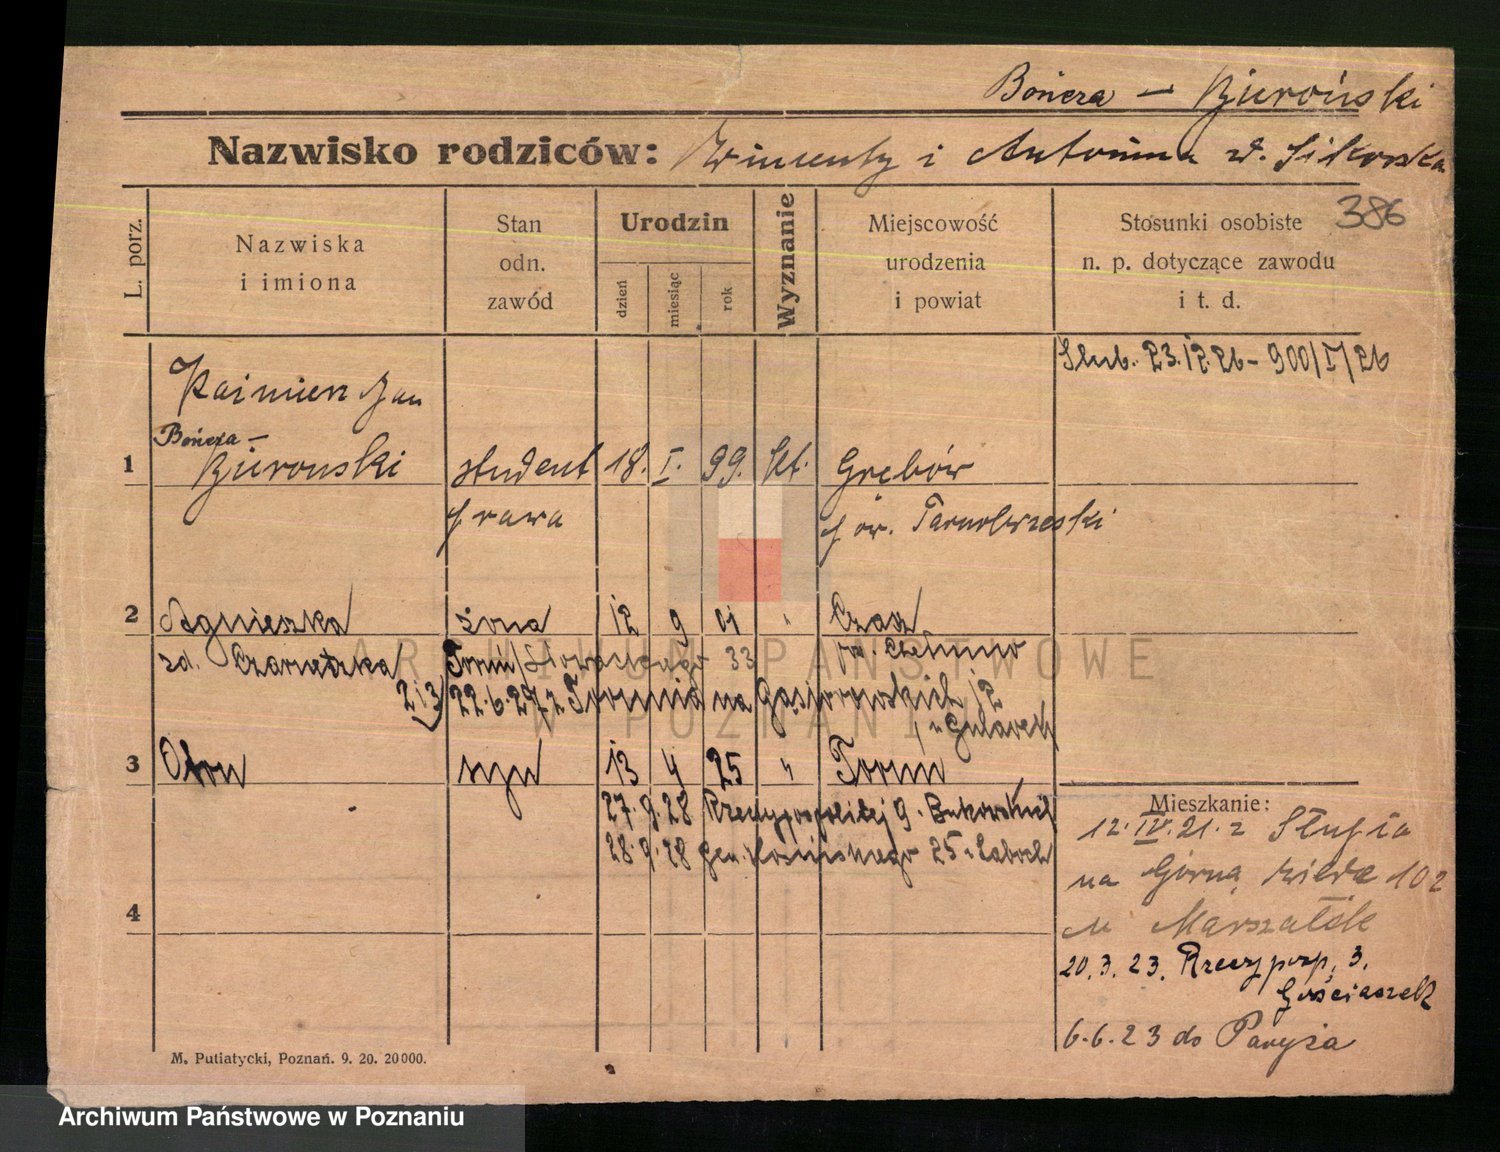 Bończa —
Nazwisko rodziców: Wincenty i Antonina z d. Sikorska
386
L. porz.
Nazwiska
i imiona
Stan
odn.
zawód
Urodzin
dzień
miesiąc
rok
Wyznanie
Miejscowość
urodzenia
i powiat
Stosunki osobiste
n. p. dotyczące zawodu
i t. d.
Ślub. 23.12.26 - 900/I/26
Kaźmierz Jan
Bończa —
1 student 18. I. 99. kt. Grębów
prawa pow. Tarnobrzeski
2 Agnieszka żona 12 9 01 " 
zd. Toruń/Słowackiego 33
2i3 22.6.27 z Torunia na Gąsiorowskich 12
3 syn 13 4 25 " Toruń
27.9.28 Rzeczypospolitej 9.
28.9.28 gen. Kosińskiego 25
4
Mieszkanie:
12.IV.21. z Słupia
na Górną Wildę 102
u Marszałek
20.3.23. Rzeczyposp. 3.
Gościaszek
6.6.23 do Paryża
M. Putiatycki, Poznań. 9. 20. 20000.
ARCHIWUM PAŃSTWOWE
W POZNANIU
Archiwum Państwowe w Poznaniu